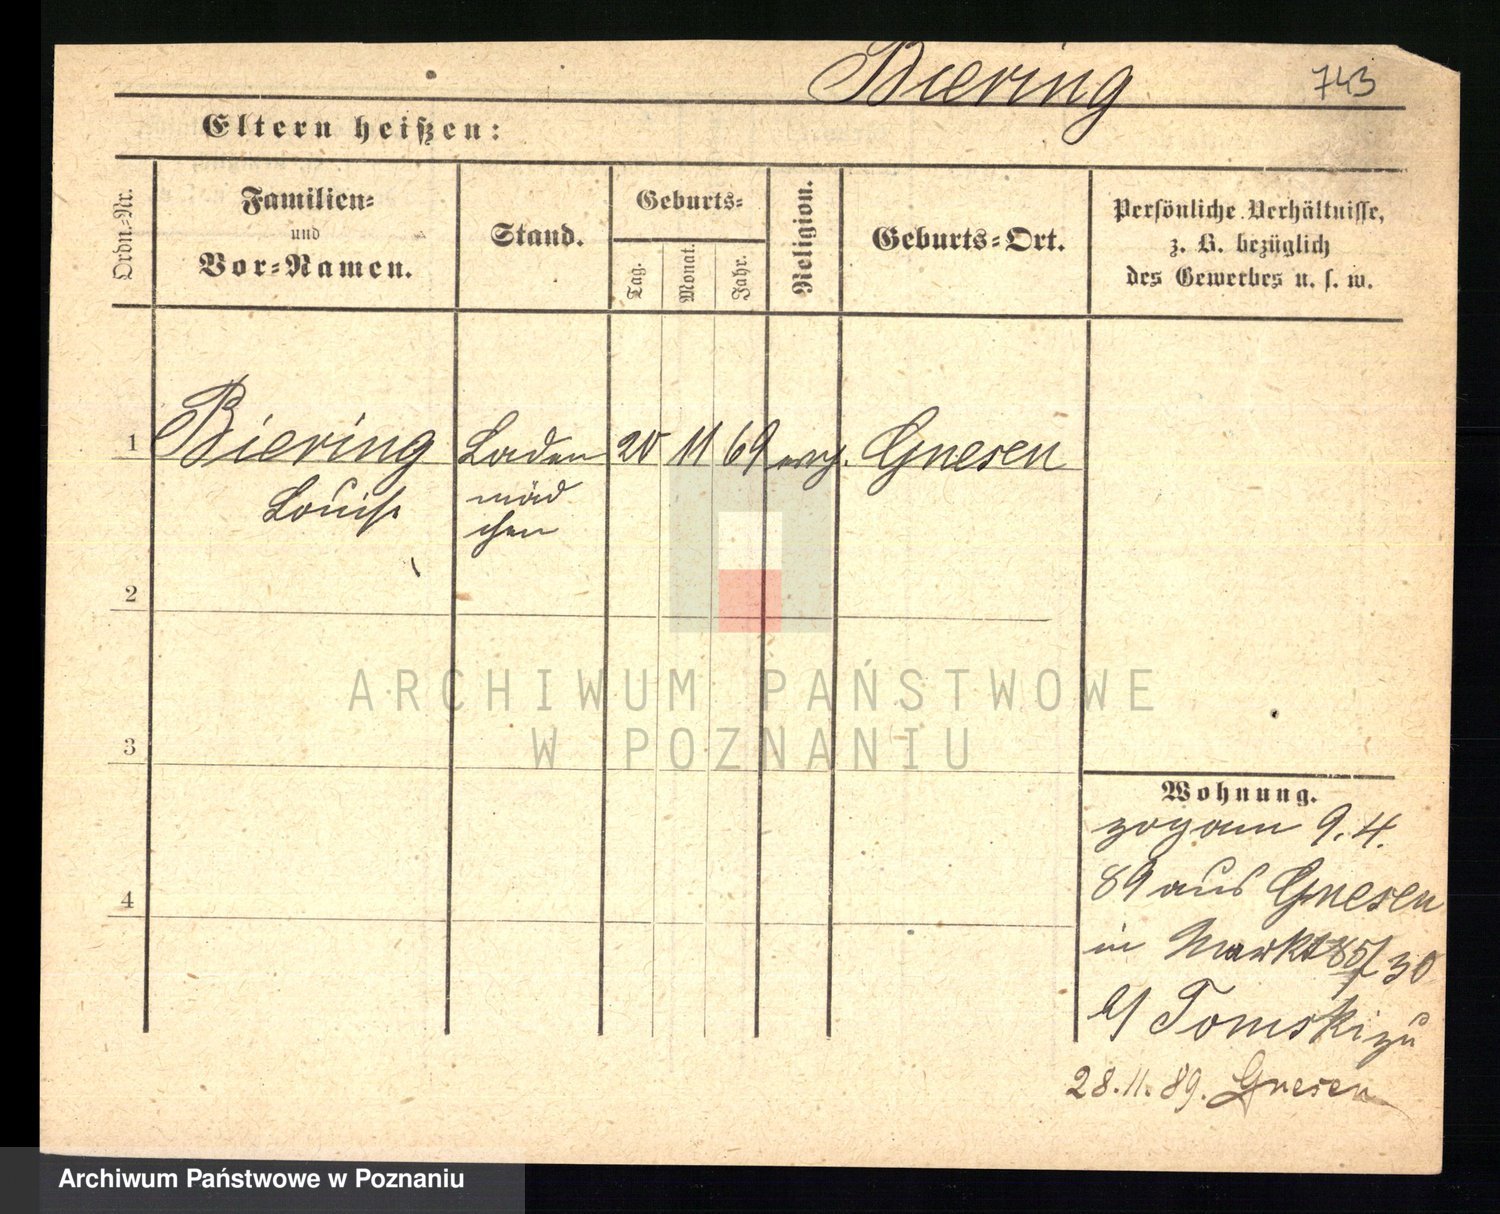 Biering 743
Eltern heißen:
Ordn.-Nr.
Familien-
und
Vor-Namen.
Stand.
Geburts-
Tag.
Monat.
Jahr.
Religion.
Geburts-Ort.
Persönliche Verhältnisse,
z. B. bezüglich
des Gewerbes u. s. w.
1 Biering Laden 20 11 69 evg. Gnesen
Louise mäd
chen
2
3
4
ARCHIWUM PAŃSTWOWE
W POZNANIU
Wohnung.
zog am 9.4.
89 aus Gnesen
in Markt 85/30
b/ Tomski zu
28.11.89. Gnesen
Archiwum Państwowe w Poznaniu